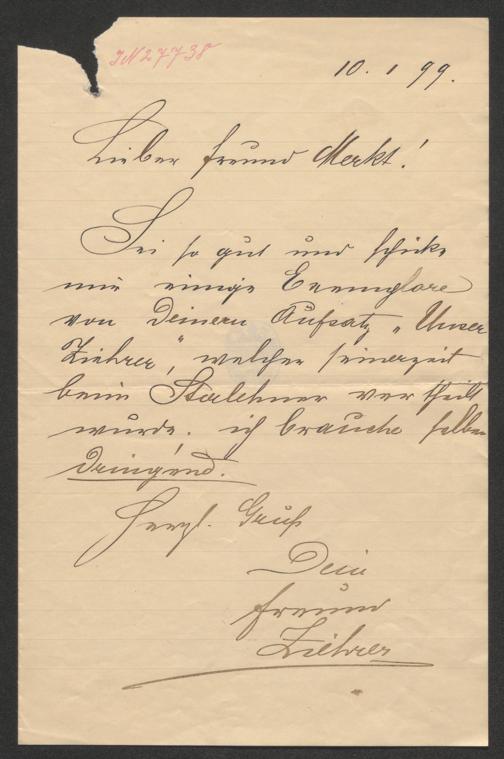 IN 27738
10. 1 99.
Lieber Freund Merkt!
Sei so gut und schicke
mir einige Exemplare
von Deinem Aufsatz „Unser
Ziehrer", welcher seinerzeit
beim Stalehner vertheilt
wurde. ich brauche selbe
dringend.
Herzl. Gruß
Dein
Freund
Ziehrer